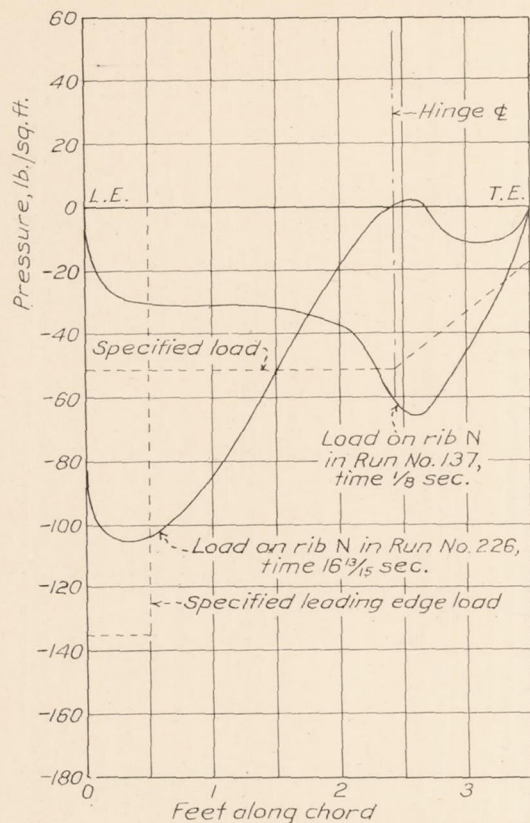 60
40
20
0
-20
-40
-60
-80
-100
-120
-140
-160
-180
Pressure, lb./sq.ft.
Hinge ℄
L.E.
T.E.
Specified load
Load on rib N
in Run No.137,
time 1/8 sec.
Load on rib N in Run No.226,
time 16 13/15 sec.
Specified leading edge load
0
1
2
3
Feet along chord